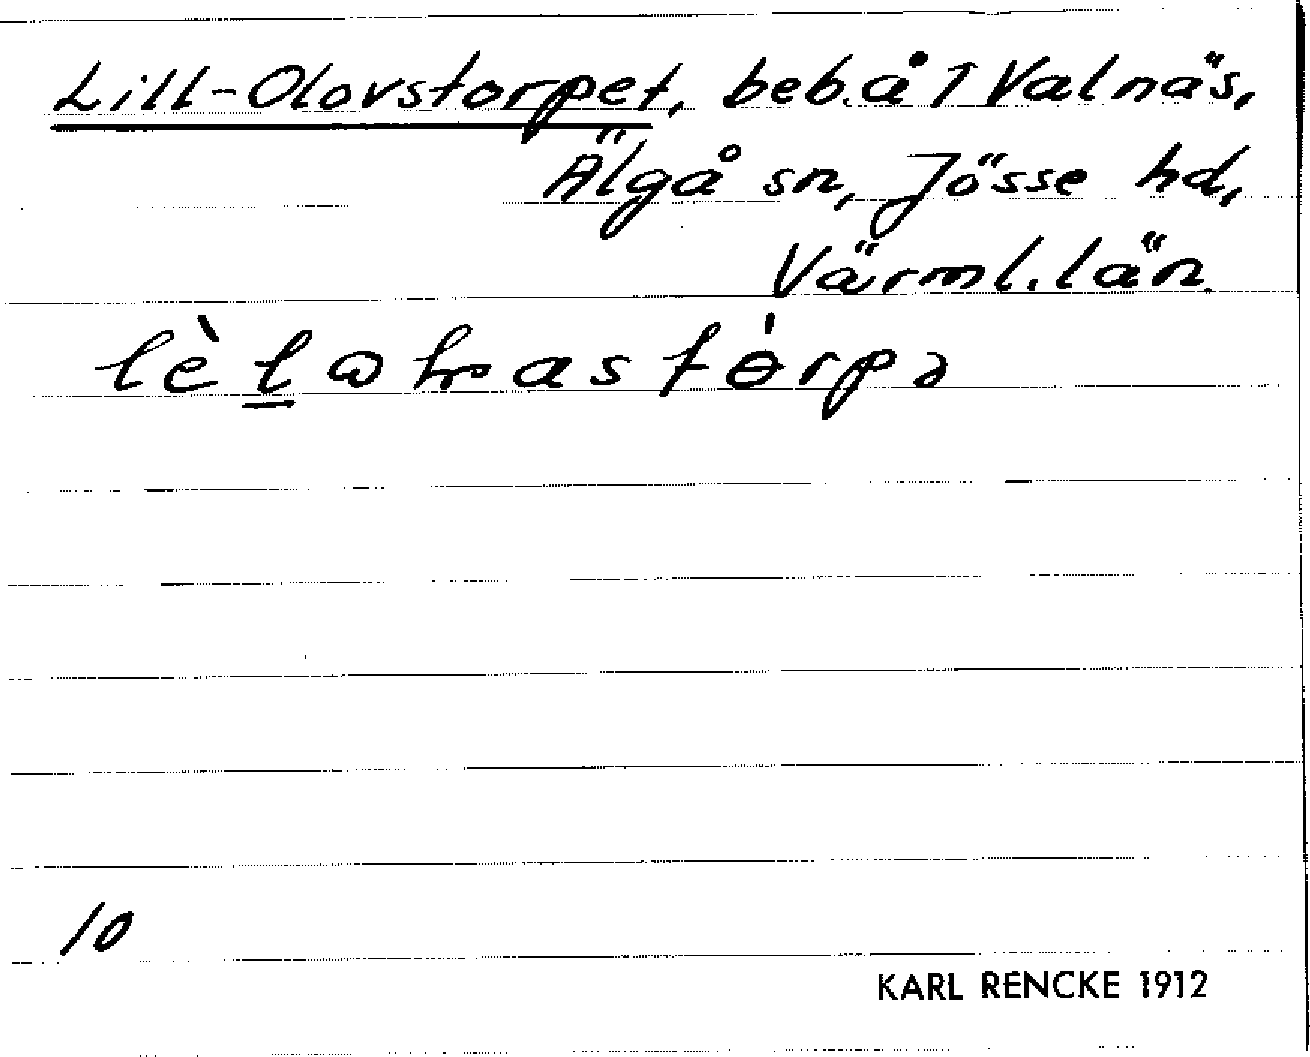 Lill-Olovstorpet, beb. å 1 Valnäs,
Älgå sn, Jösse hd,
Värml. län.
10
KARL RENCKE 1912